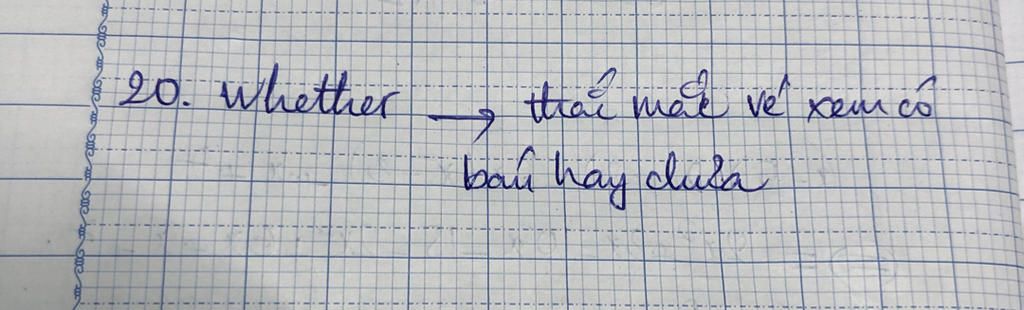 20. Whether → thắc mắc vé xem có
bán hay chưa